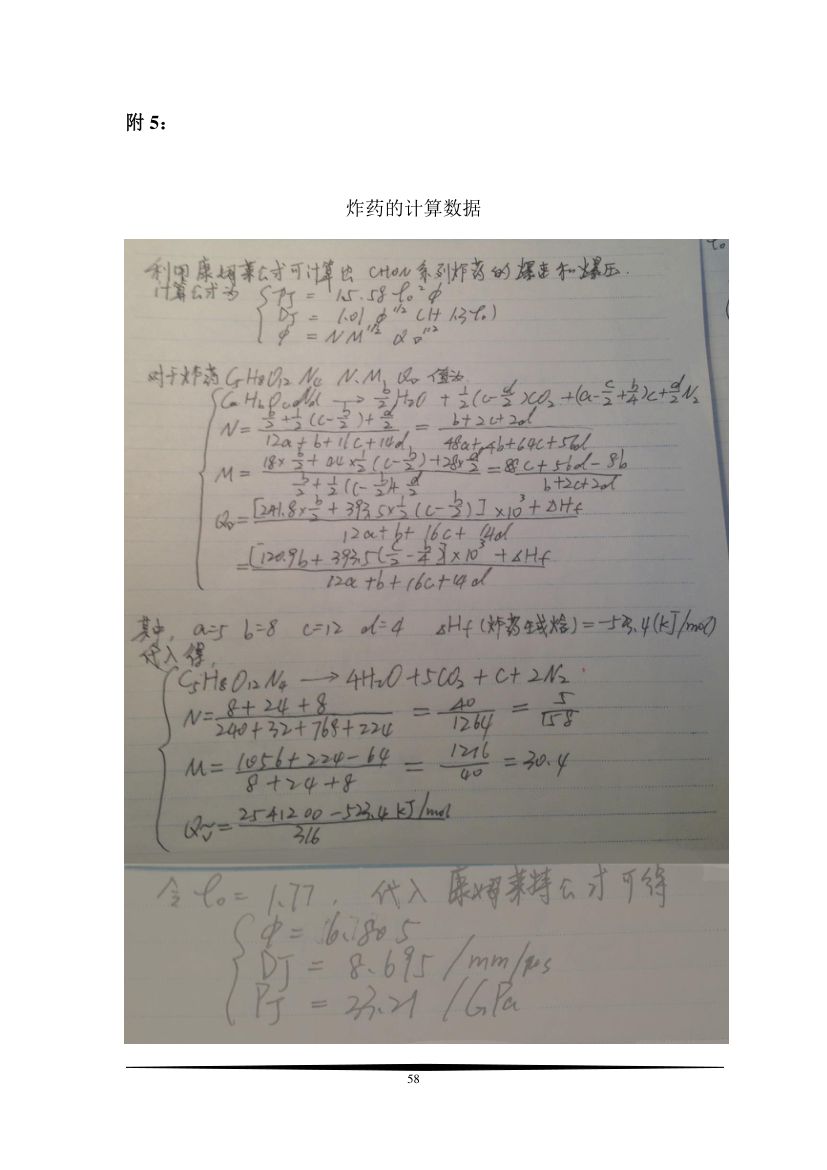 附 5：
炸药的计算数据
利用康姆莱公式可计算出 CHON系列炸药的爆速和爆压.
计算公式为 { PJ = 15.58 ρ₀²φ
DJ = 1.01 φ^1/2 (1+1.3ρ₀)
φ = NM^1/2 Q^1/2
对于炸药 C5H8O12N4 N、M、Q 值为
CaHbOcNd → b/2 H2O + 1/2(c-b/2)CO2 +(a-c/2+b/4)C+d/2 N2
N = (b/2+1/2(c-b/2)+d/2)/(12a+b+16c+14d) = (b+2c+2d)/(48a+4b+64c+56d)
M = (18×b/2+44×1/2(c-b/2)+28×d/2)/(b/2+1/2(c-b/2)+d/2) = (88c+56d-8b)/(b+2c+2d)
Q = ([241.8×b/2+393.5×1/2(c-b/2)]×10³+ΔHf)/(12a+b+16c+14d)
= ([120.9b+393.5(c/2-b/4)]×10³+ΔHf)/(12a+b+16c+14d)
其中, a=5 b=8 c=12 d=4 ΔHf (炸药生成焓)=-523.4(kJ/mol)
代入得,
C5H8O12N4 → 4H2O+5CO2+C+2N2
N = (8+24+8)/(240+32+768+224) = 40/1264 = 5/158
M = (1056+224-64)/(8+24+8) = 1216/40 = 30.4
Q = (2541200-523.4 kJ/mol)/316
令 ρ₀= 1.77, 代入康姆莱特公式可得
{ φ = 6.7805
DJ = 8.695 /mm/μs
PJ = 23.21 /GPa
58